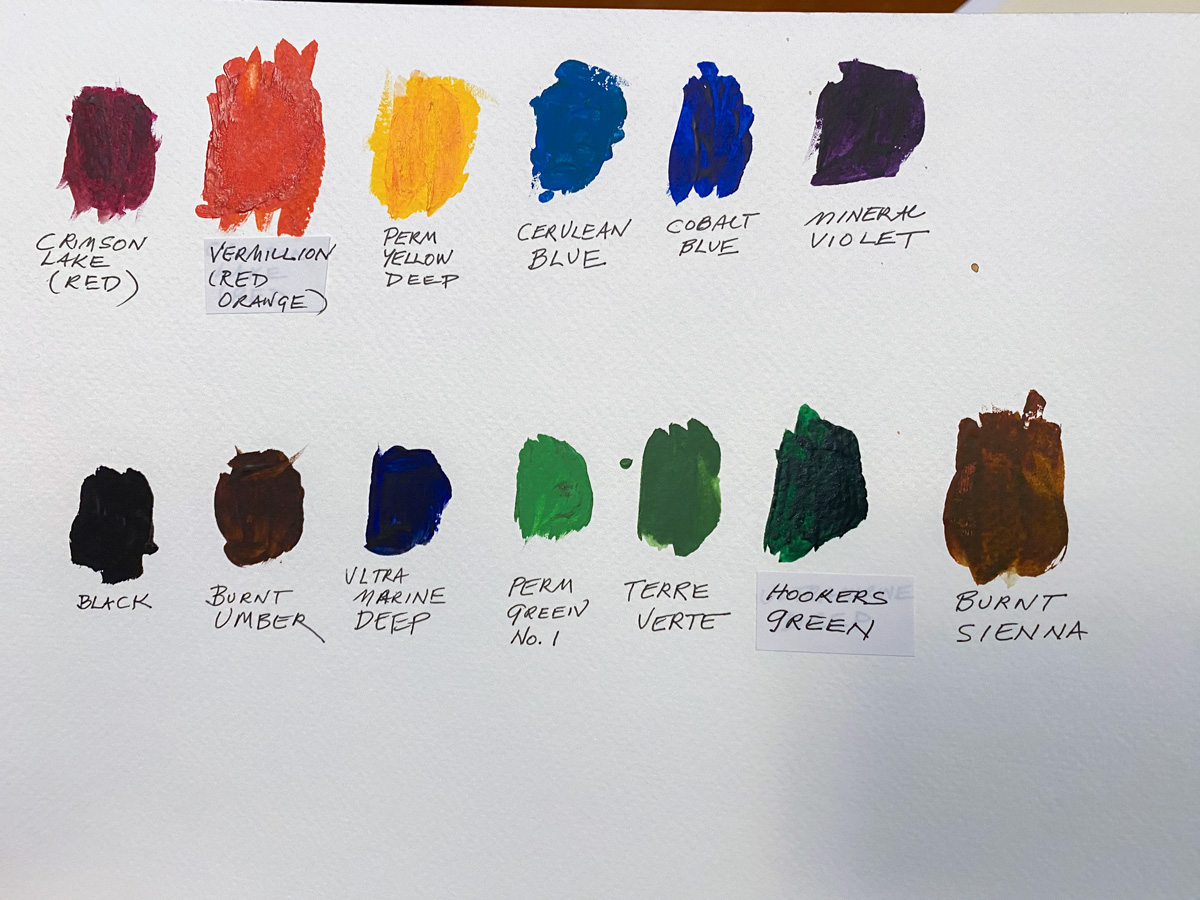 CRIMSON
LAKE
(RED)
VERMILLION
(RED
ORANGE)
PERM
YELLOW
DEEP
CERULEAN
BLUE
COBALT
BLUE
MINERAL
VIOLET
BLACK
BURNT
UMBER
ULTRA
MARINE
DEEP
PERM
GREEN
No. 1
TERRE
VERTE
HOOKERS
GREEN
BURNT
SIENNA